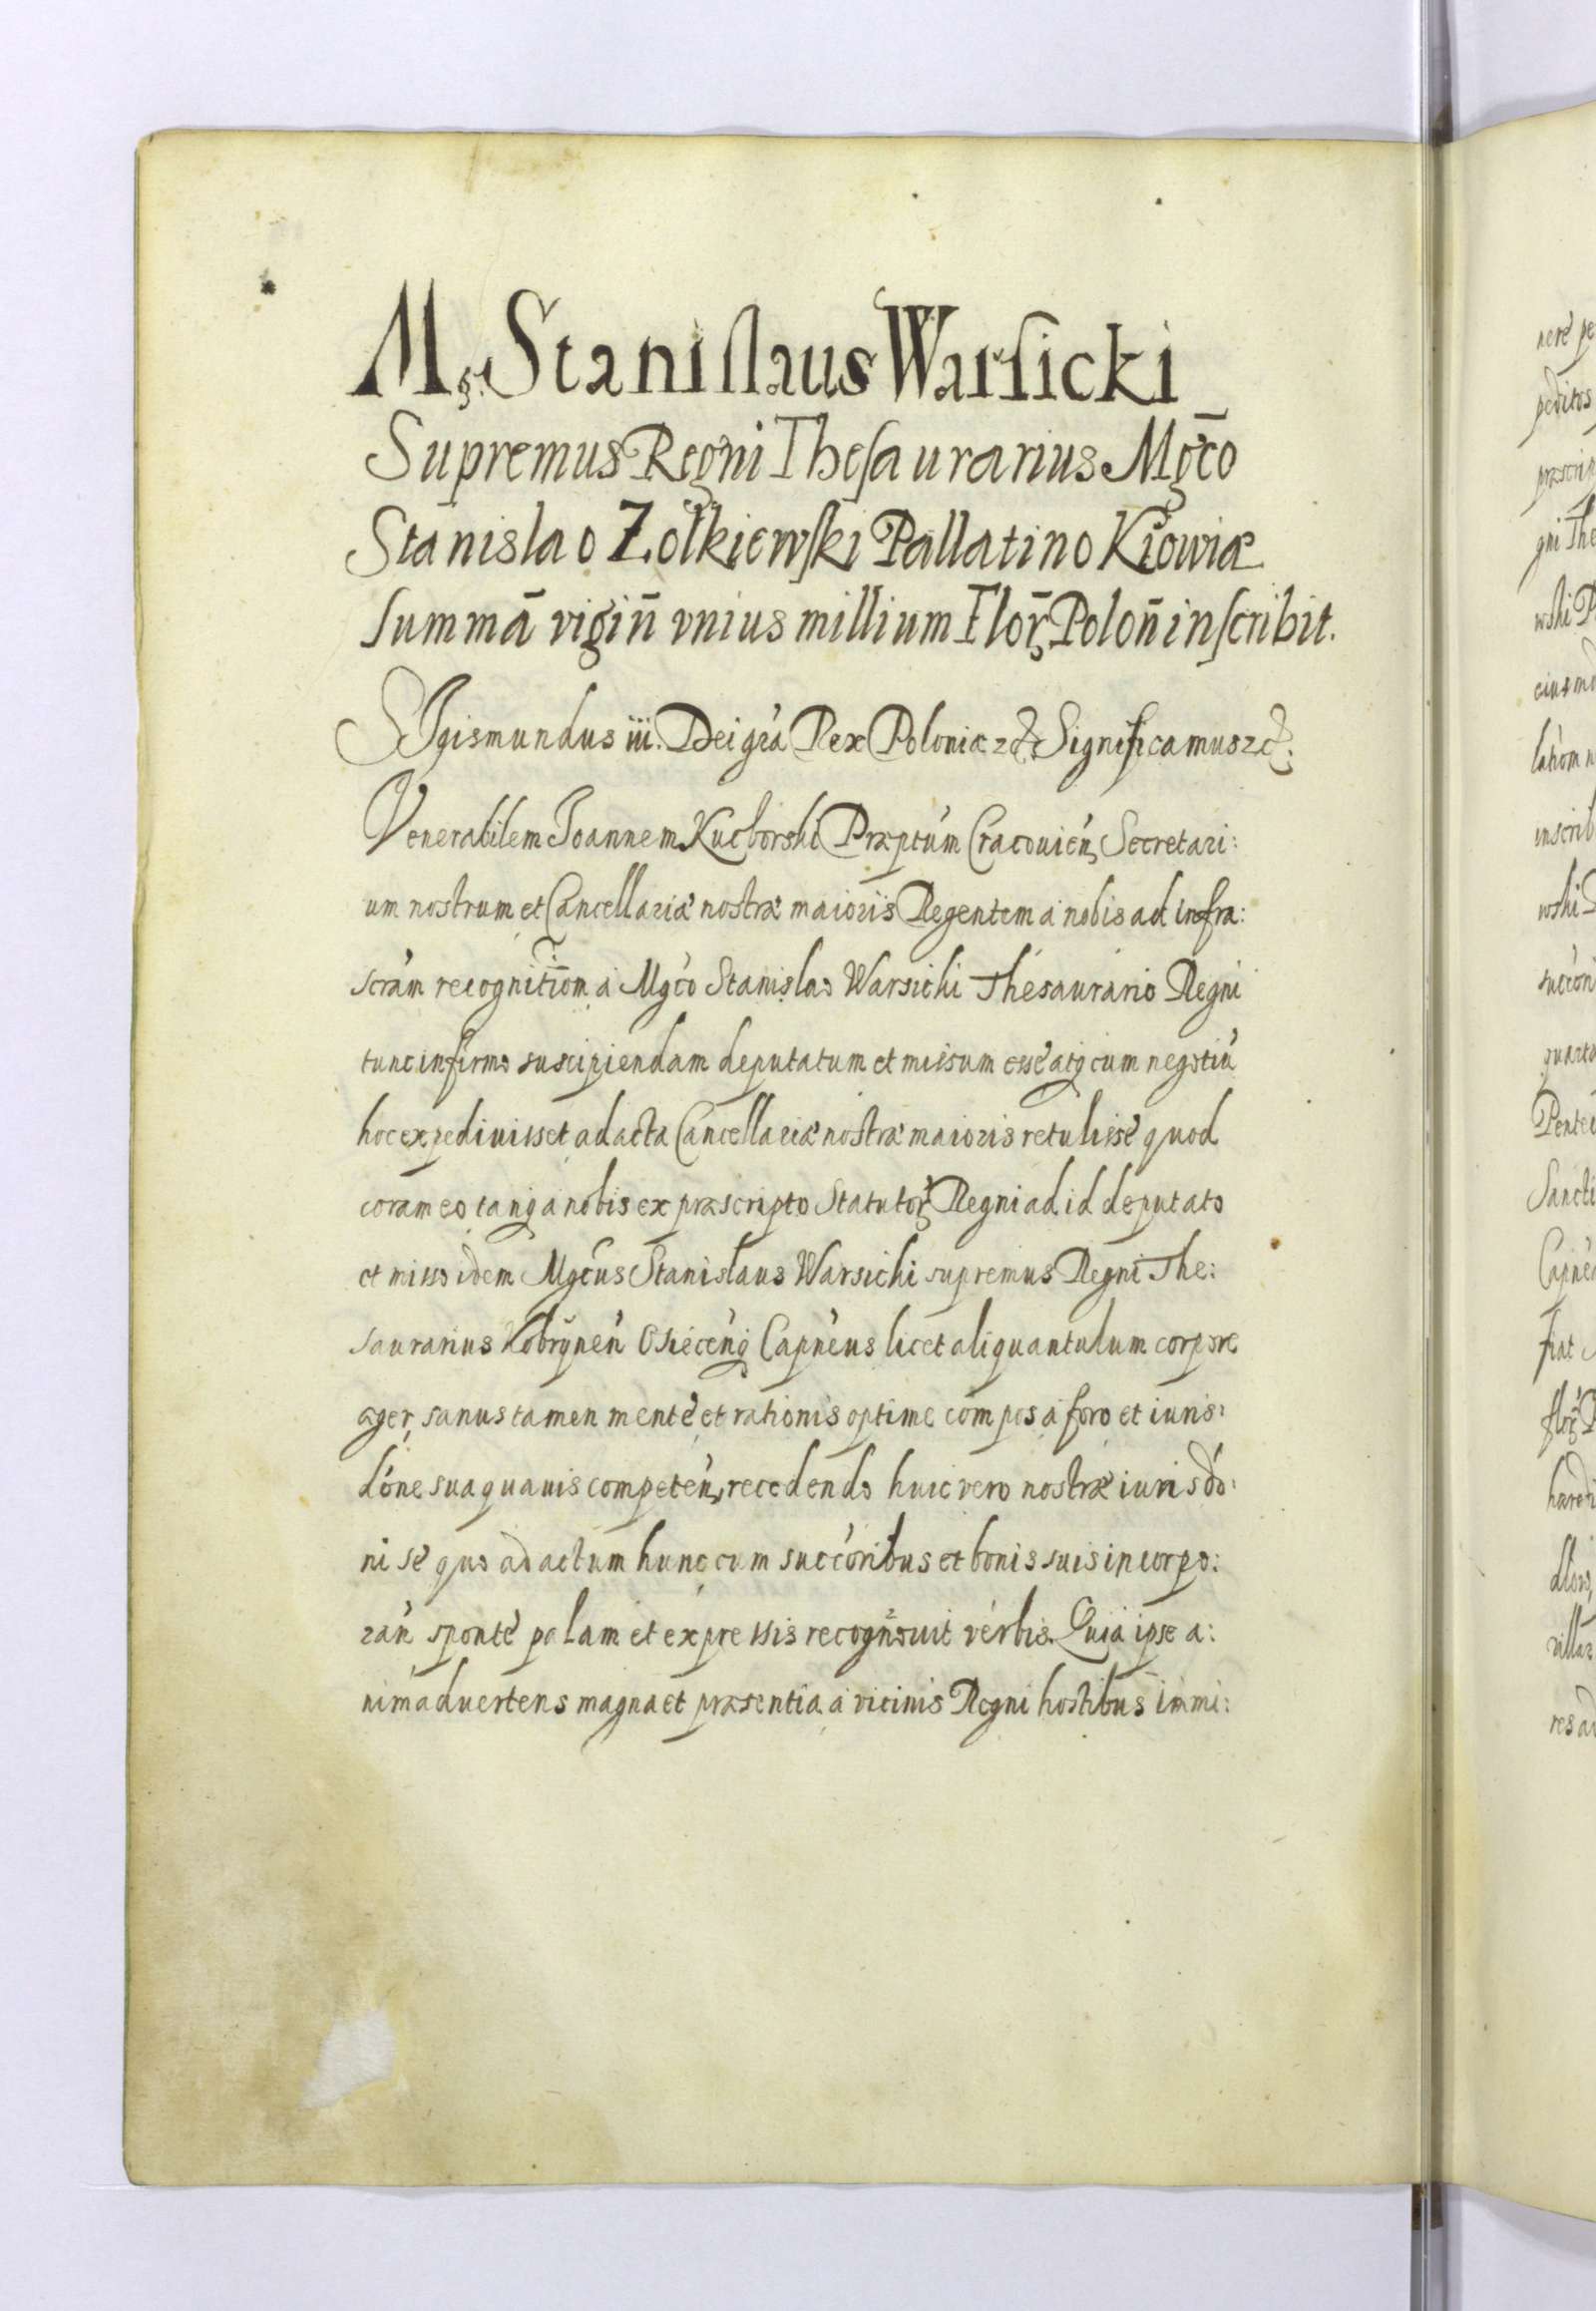 Mg. Stanislaus Warsicki
Supremus Regni Thesaurarius Mgco
Stanislao Zolkiewski Pallatino Kiowiæ
summā vigiñ vnius millium Floř Poloñ inscribit.
SIgismundus iii. Dei gra Rex Poloniæ &c Significamus &c:
Venerabilem Joannem Kucborski Præptum Cracouien Secretari:
um nostrum et Cancellariæ nostræ maioris Regentem a nobis ad infra:
scram recognitiom a Mgco Stanislao Warsichi Thesaurario Regni
tunc infirmo suscipiendam deputatum et missum esse atq cum negotiu
hoc expediuisset ad acta Cancellariæ nostræ maioris retulisse quod
coram eo tanq a nobis ex præscripto Statutoř Regni ad id deputato
et misso idem Mgcus Stanislaus Warsichi supremus Regni The:
saurarius Kobrynen Osiecenq Capneus licet aliquantulum corpore
æger, sanus tamen mente et rationis optime compos a foro et iuris:
done sua quauis competen recedendo huic vero nostræ iurisdo:
ni se quo ad actum hunc cum succoribus et bonis suis incorpo:
ran sponte palam et expressis recognouit verbis. Quia ipse a:
nimaduertens magna et præsentia a vicinis Regni hostibus immi:
nere pe
peditos
præscrip
gni The
wski P
eius mo
lahom n
inscrib
wski
succon
quarta
Pente
Sancti
Capne
fiat
floř P
hæredi
villar
res ad